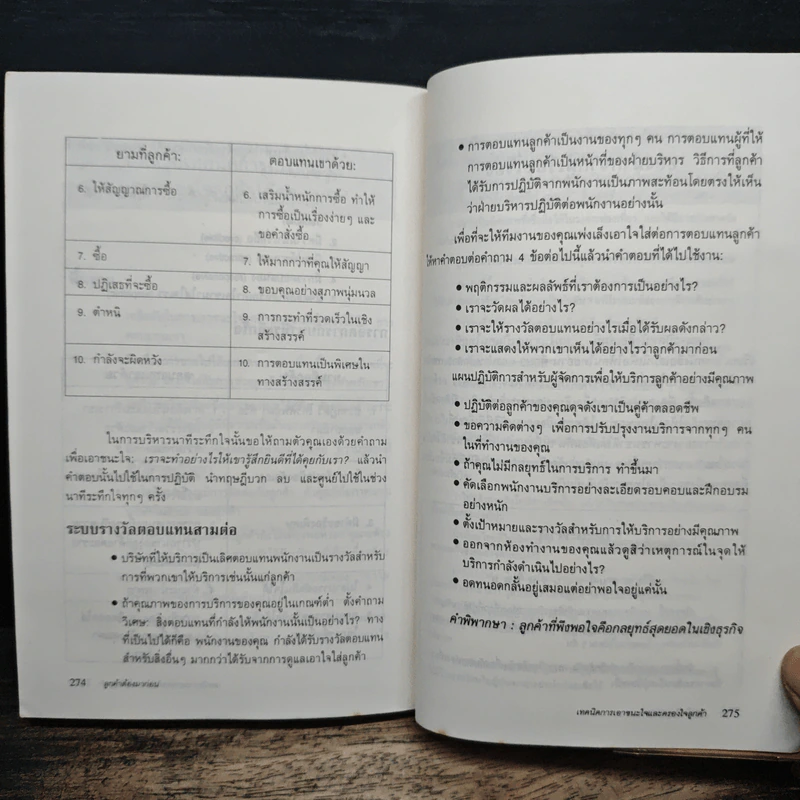 ยามที่ลูกค้า: ตอบแทนเขาด้วย:
6. ให้สัญญาณการซื้อ 6. เสริมน้ำหนักการซื้อ ทำให้
การซื้อเป็นเรื่องง่ายๆ และ
ขอคำสั่งซื้อ
7. ซื้อ 7. ให้มากกว่าที่คุณให้สัญญา
8. ปฏิเสธที่จะซื้อ 8. ขอบคุณอย่างสุภาพนุ่มนวล
9. ตำหนิ 9. การกระทำที่รวดเร็วในเชิง
สร้างสรรค์
10. กำลังจะผิดหวัง 10. การตอบแทนเป็นพิเศษใน
ทางสร้างสรรค์
ในการบริหารนาทีระทึกใจนั้นขอให้ถามตัวคุณเองด้วยคำถาม
เพื่อเอาชนะใจ; เราจะทำอย่างไรให้เขารู้สึกยินดีที่ได้คุยกับเรา? แล้วนำ
คำตอบนั้นไปใช้ในการปฏิบัติ นำทฤษฎีบวก ลบ และศูนย์ไปใช้ในช่วง
นาทีระทึกใจทุกๆ ครั้ง
ระบบรางวัลตอบแทนสามต่อ
• บริษัทที่ให้บริการเป็นเลิศตอบแทนพนักงานเป็นรางวัลสำหรับ
การที่พวกเขาให้บริการเช่นนั้นแก่ลูกค้า
• ถ้าคุณภาพของการบริการของคุณอยู่ในเกณฑ์ต่ำ ตั้งคำถาม
วิเศษ: สิ่งตอบแทนที่กำลังให้พนักงานนั้นเป็นอย่างไร? ทาง
ที่เป็นไปได้ก็คือ พนักงานของคุณ กำลังได้รับรางวัลตอบแทน
สำหรับสิ่งอื่นๆ มากกว่าได้รับจากการดูแลเอาใจใส่ลูกค้า
274 ลูกค้าต้องมาก่อน
• การตอบแทนลูกค้าเป็นงานของทุกๆ คน การตอบแทนผู้ที่ให้
การตอบแทนลูกค้าเป็นหน้าที่ของฝ่ายบริหาร วิธีการที่ลูกค้า
ได้รับการปฏิบัติจากพนักงานเป็นภาพสะท้อนโดยตรงให้เห็น
ว่าฝ่ายบริหารปฏิบัติต่อพนักงานอย่างนั้น
เพื่อที่จะให้ทีมงานของคุณเพ่งเล็งเอาใจใส่ต่อการตอบแทนลูกค้า
ให้หาคำตอบต่อคำถาม 4 ข้อต่อไปนี้แล้วนำคำตอบที่ได้ไปใช้งาน:
• พฤติกรรมและผลลัพธ์ที่เราต้องการเป็นอย่างไร?
• เราจะวัดผลได้อย่างไร?
• เราจะให้รางวัลตอบแทนอย่างไรเมื่อได้รับผลดังกล่าว?
• เราจะแสดงให้พวกเขาเห็นได้อย่างไรว่าลูกค้ามาก่อน
แผนปฏิบัติการสำหรับผู้จัดการเพื่อให้บริการลูกค้าอย่างมีคุณภาพ
• ปฏิบัติต่อลูกค้าของคุณดุจดังเขาเป็นคู่ค้าตลอดชีพ
• ขอความคิดต่างๆ เพื่อการปรับปรุงงานบริการจากทุกๆ คน
ในที่ทำงานของคุณ
• ถ้าคุณไม่มีกลยุทธ์ในการบริการ ทำขึ้นมา
• คัดเลือกพนักงานบริการอย่างละเอียดรอบคอบและฝึกอบรม
อย่างหนัก
• ตั้งเป้าหมายและรางวัลสำหรับการให้บริการอย่างมีคุณภาพ
• ออกจากห้องทำงานของคุณแล้วดูสิว่าเหตุการณ์ในจุดให้
บริการกำลังดำเนินไปอย่างไร?
• อดทนอดกลั้นอยู่เสมอแต่อย่าพอใจอยู่แค่นั้น
คำพิพากษา : ลูกค้าที่พึงพอใจคือกลยุทธ์สุดยอดในเชิงธุรกิจ
เทคนิคการเอาชนะใจและครองใจลูกค้า 275